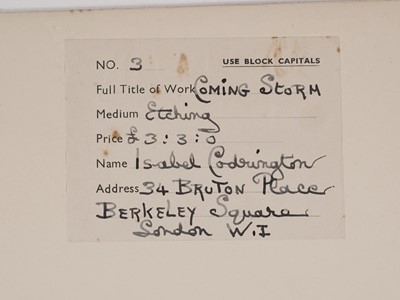 NO. 3 USE BLOCK CAPITALS
Full Title of Work COMING STORM
Medium Etching
Price £3:3:0
Name Isabel Codrington
Address 34 BRUTON Place
BERKELEY Square
London W.I